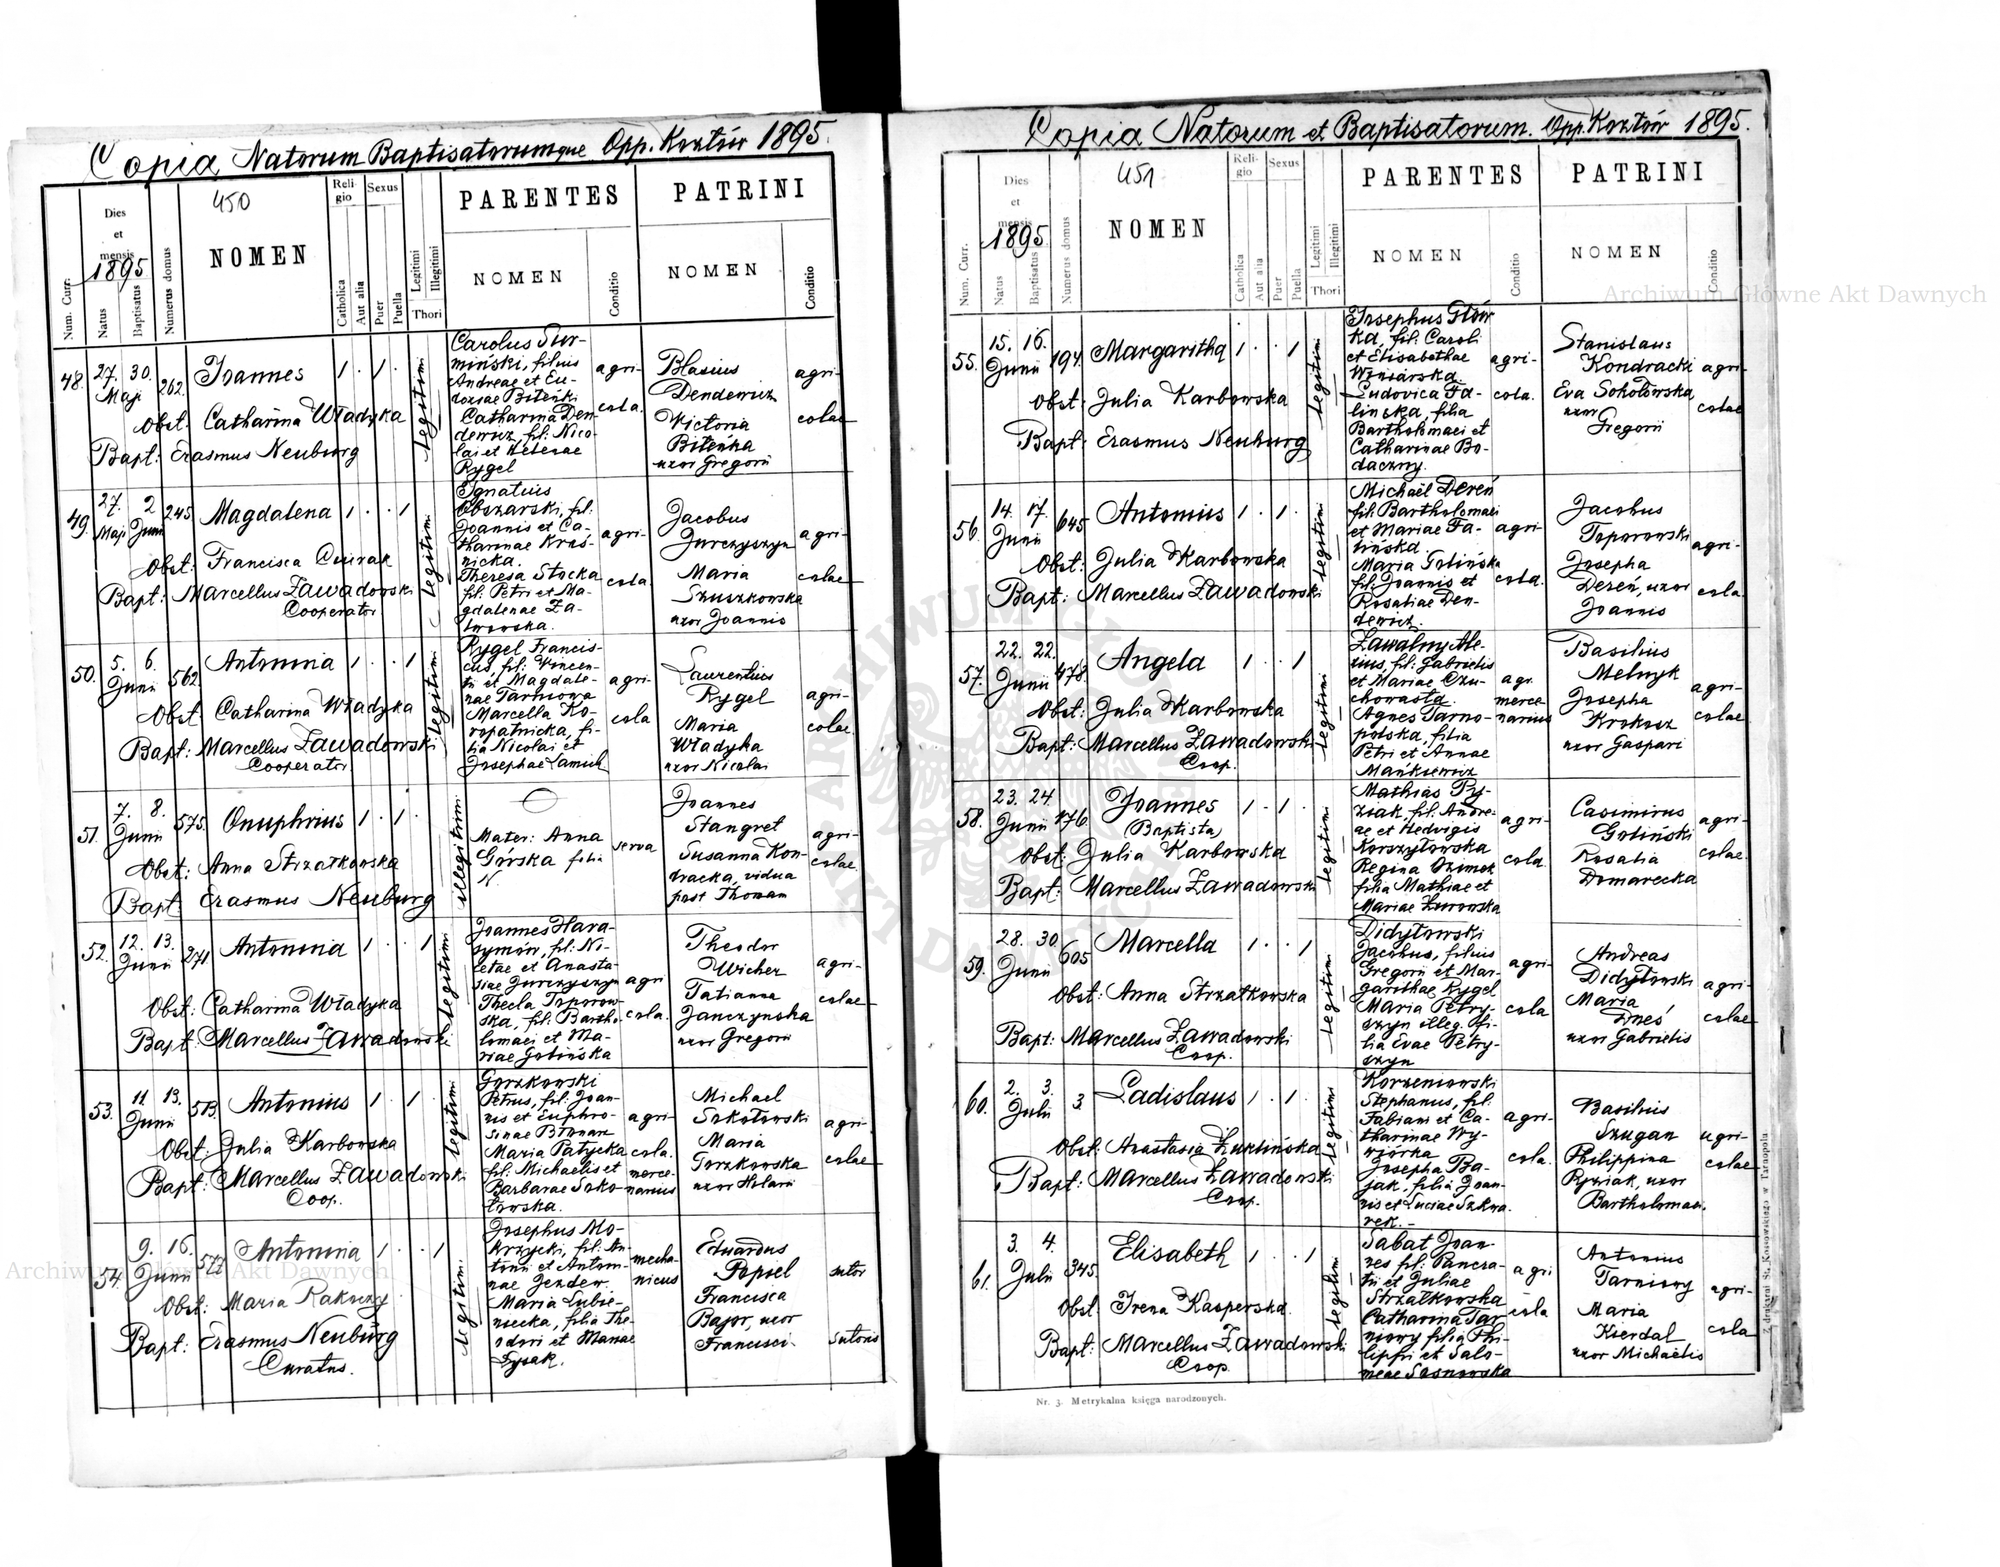 Copia Natorum Baptisatorumque Opp. Kozłów 1895.
450
Num. Curr.
Dies
et
mensis
1895
Natus
Baptisatus
Numerus domus
NOMEN
Reli-
gio
Catholica
Aut alia
Sexus
Puer
Puella
Legitimi
Illegitimi
Thori
PARENTES
NOMEN
Conditio
PATRINI
NOMEN
Conditio
48.
27. 30.
Maji
262.
Joannes
1 . 1 .
Obst: Catharina Władyka
Bapt: Erasmus Neuburg
legitimi
Carolus
miński, filius
Andreae et Eu-
Bitenki
Catharina Den-
dewicz, fil: Nico-
lai et Helenae
Rygel
agri-
cola.
Blasius
Dendewicz
Victoria
Bitenka
uxor Gregorii
agri-
colae
49.
27. 2
Maji Junii
245
Magdalena
1 . . 1
Obst: Francisca
Bapt: Marcellus Zawadowski
Cooperator
legitimi
Ignatius
Obszarski, fil:
Joannis et Ca-
tharinae Kraś-
nicka.
Theresa Stocka
fil: Petri et Ma-
gdalenae Za-
agri-
cola
Jacobus
Jurczyszyn
Maria
Szuszkowska
uxor Joannis
agri-
colae
50.
5. 6.
Junii
562.
Antonina
1 . . 1
Obst: Catharina Władyka
Bapt: Marcellus Zawadowski
Cooperator
legitimi
Rygel Francis-
cus, fil: Vincen-
tii et Magdale-
nae Tarniowa
Marcella Ko-
ropatnicka, fi-
lia Nicolai et
Josephae
agri-
cola
Laurentius
Rygel
Maria
Władyka
uxor Nicolai
agri-
colae.
51.
7. 8.
Junii
575.
Onuphrius
1 . 1 .
Obst: Anna Strzałkowska
Bapt: Erasmus Neuburg
illegitimi
Mater: Anna
Górska filia
N.
serva
Joannes
Stangret
Susanna Kon-
dracka, vidua
post Thomam
agri-
colae.
52.
12. 13.
Junii
271.
Antonina
1 . . 1
Obst: Catharina Władyka
Bapt: Marcellus Zawadowski
legitimi
Joannes Hara-
symów, fil: Ni-
cetae et Anasta-
siae Jurczyszyn
Thecla Toporow-
ska, fil: Bartho-
lomaei et Ma-
riae Golińska
agri
cola.
Theodor
Wicher
Tatianna
Janczynska
uxor Gregorii
agri-
colae
53.
11. 13.
Junii
513.
Antonius
1 . 1 .
Obst: Julia Karbowska
Bapt: Marcellus Zawadowski
Coop.
legitimi
Gorzkowski
Petrus, fil: Joan-
nis et Euphro-
sinae
Maria Patycka
fil: Michaelis et
Barbarae Soko-
łowska.
agri-
cola.
merce-
narius
Michael
Sokołowski
Maria
Gorzkowska
uxor Hilarii
agri-
colae
54.
9. 16.
Junii
577
Antonina
1 . . 1
Obst: Maria Rakoczy
Bapt: Erasmus Neuburg
Curatus.
legitimi
Josephus Mo-
krzycki, fil: An-
tonii et Antoni-
nae
Maria Lubie-
niecka, filia The-
odori et Mariae
Łysak.
mecha-
nicus
Eduardus
Popiel
Francisca
Bajor, uxor
Francisci.
sutor
sutoris
Copia Natorum et Baptisatorum. Opp. Kozłów 1895.
451
Num. Curr.
Dies
et
mensis
1895
Natus
Baptisatus
Numerus domus
NOMEN
Reli-
gio
Catholica
Aut alia
Sexus
Puer
Puella
Legitimi
Illegitimi
Thori
PARENTES
NOMEN
Conditio
PATRINI
NOMEN
Conditio
55.
15. 16.
Junii
194.
Margaritha
1 . . 1
Obst: Julia Karbowska
Bapt: Erasmus Neuburg
legitimi
Josephus Głów-
ka, fil: Caroli
et Elisabethae
Winiarska
Ludovica Fa-
linska, filia
Bartholomaei et
Catharinae Bo-
daczny.
agri-
cola.
Stanislaus
Kondracki
Eva Sokołowska
uxor
Gregorii
agri-
colae
56.
14. 17.
Junii
645
Antonius
1 . 1 .
Obst: Julia Karbowska
Bapt: Marcellus Zawadowski
legitimi
Michaël Dereń
fil: Bartholomaei
et Mariae Fa-
lińska.
Maria Golińska
fil: Joannis et
Rosaliae Den-
dewicz.
agri-
cola.
Jacobus
Toporowski
Josepha
Dereń, uxor
Joannis
agri-
cola.
57.
22. 22.
Junii
478.
Angela
1 . . 1
Obst: Julia Karbowska
Bapt: Marcellus Zawadowski
Coop.
legitimi
Zawalny Ale-
xius, fil: Gabrielis
et Mariae Czu-
chowasta.
Agnes Tarno-
polska, filia
Petri et Annae
Mańkiewicz
agr.
merce-
narius
Basilius
Melnyk
Josepha
Krokosz
uxor Gaspari
agri-
colae.
58.
23. 24.
Junii
176.
Joannes
(Baptista)
1 . 1 .
Obst: Julia Karbowska
Bapt: Marcellus Zawadowski
legitimi
Mathias Py-
ziak, fil: Andre-
ae et Hedvigis
Korszyłowska
Regina
filia Mathiae et
Mariae Żurowska
agri-
cola.
Casimirus
Goliński
Rosalia
Domarecka
agri-
colae.
59.
28. 30.
Junii
605
Marcella
1 . . 1
Obst: Anna Strzałkowska
Bapt: Marcellus Zawadowski
Coop.
legitimi
Didyłowski
Jacobus, filius
Gregorii et Mar-
garithae Rygel
Maria Petry-
szyn illeg. fi-
lia Evae Petry-
szyn
agri-
cola
Andreas
Didyłowski
Maria
uxor Gabrielis
agri-
colae
60.
2. 3.
Julii
3.
Ladislaus
1 . 1 .
Obst: Anastasia
Bapt: Marcellus Zawadowski
Coop.
legitimi
Korzeniowski
Stephanus, fil:
Fabiani et Ca-
tharinae Wy-
wiórka
Josepha Ba-
jak, filia Joan-
nis et Luciae
agri-
cola.
Basilius
Szugan
Philippina
Pyziak, uxor
Bartholomaei.
agri-
colae
61.
3. 4.
Julii
345.
Elisabeth
1 . . 1
Obst: Irena Kasperska.
Bapt: Marcellus Zawadowski
Coop.
legitimi
Sabat Joan-
nes fil: Pancra-
tii et Juliae
Strzałkowska
Catharina Tar-
niowy filia Phi-
lippi et Salo-
meae Sosnowska
agri
cola
Antonius
Tarniowy
Maria
Kierdal
uxor Michaelis
agri-
cola
Nr. 3. Metrykalna księga narodzonych.
Z drukarni St. Kossowskiego w Tarnopolu.
Archiwum Główne Akt Dawnych
Archiwum Główne Akt Dawnych
ARCHIWUM GŁÓWNE AKT DAWNYCH